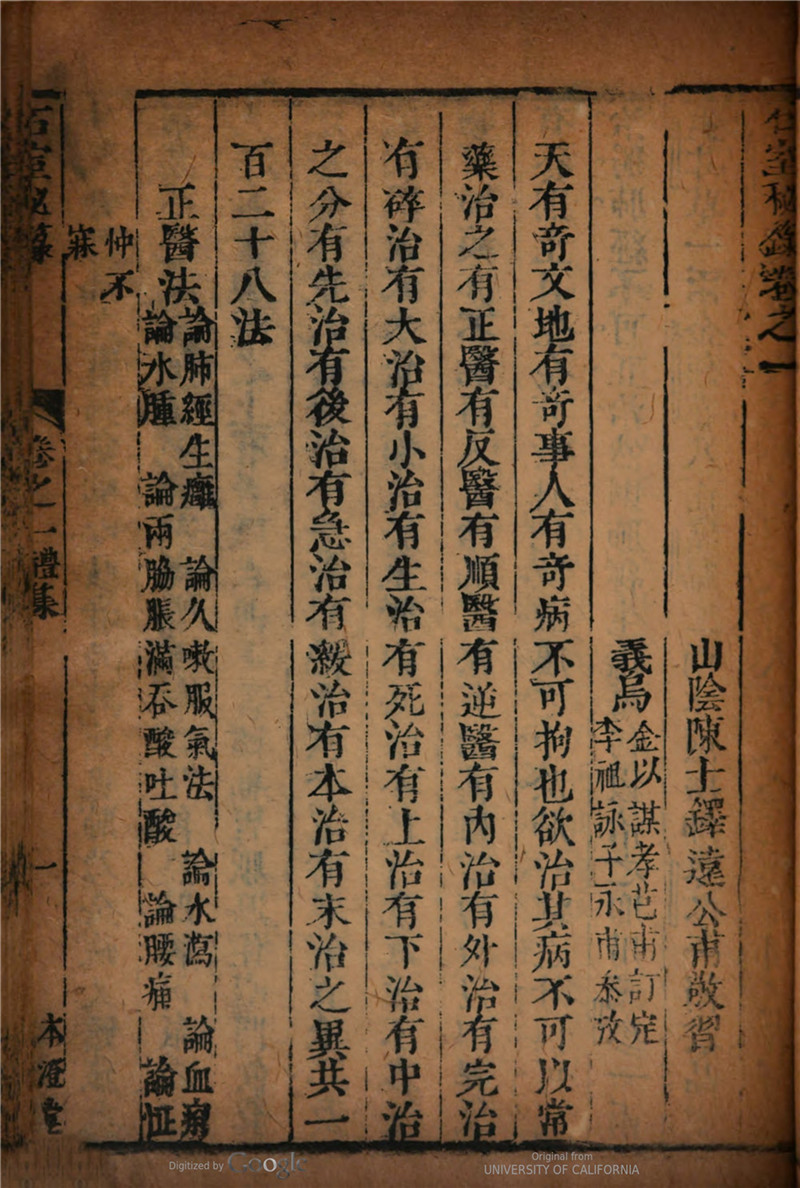 石室秘錄卷之一
山陰陳士鐸遠公甫敬習
義烏
金以謀孝芑甫訂定
李祖詠子永甫叅攷
天有奇文地有奇事人有奇病不可拘也欲治其病不可以常
藥治之有正醫有反醫有順醫有逆醫有內治有外治有完治
有碎治有大治有小治有生治有死治有上治有下治有中治
之分有先治有後治有急治有緩治有本治有末治之異共一
百二十八法
正醫法
論肺經生癰　論久嗽服氣法　論水瀉　論血痢
論水腫　論兩脇脹滿吞酸吐酸　論腰痛　論怔
忡不
寐
石室秘錄　卷之一禮集　一　本澄堂
Digitized by Google
Original from
UNIVERSITY OF CALIFORNIA